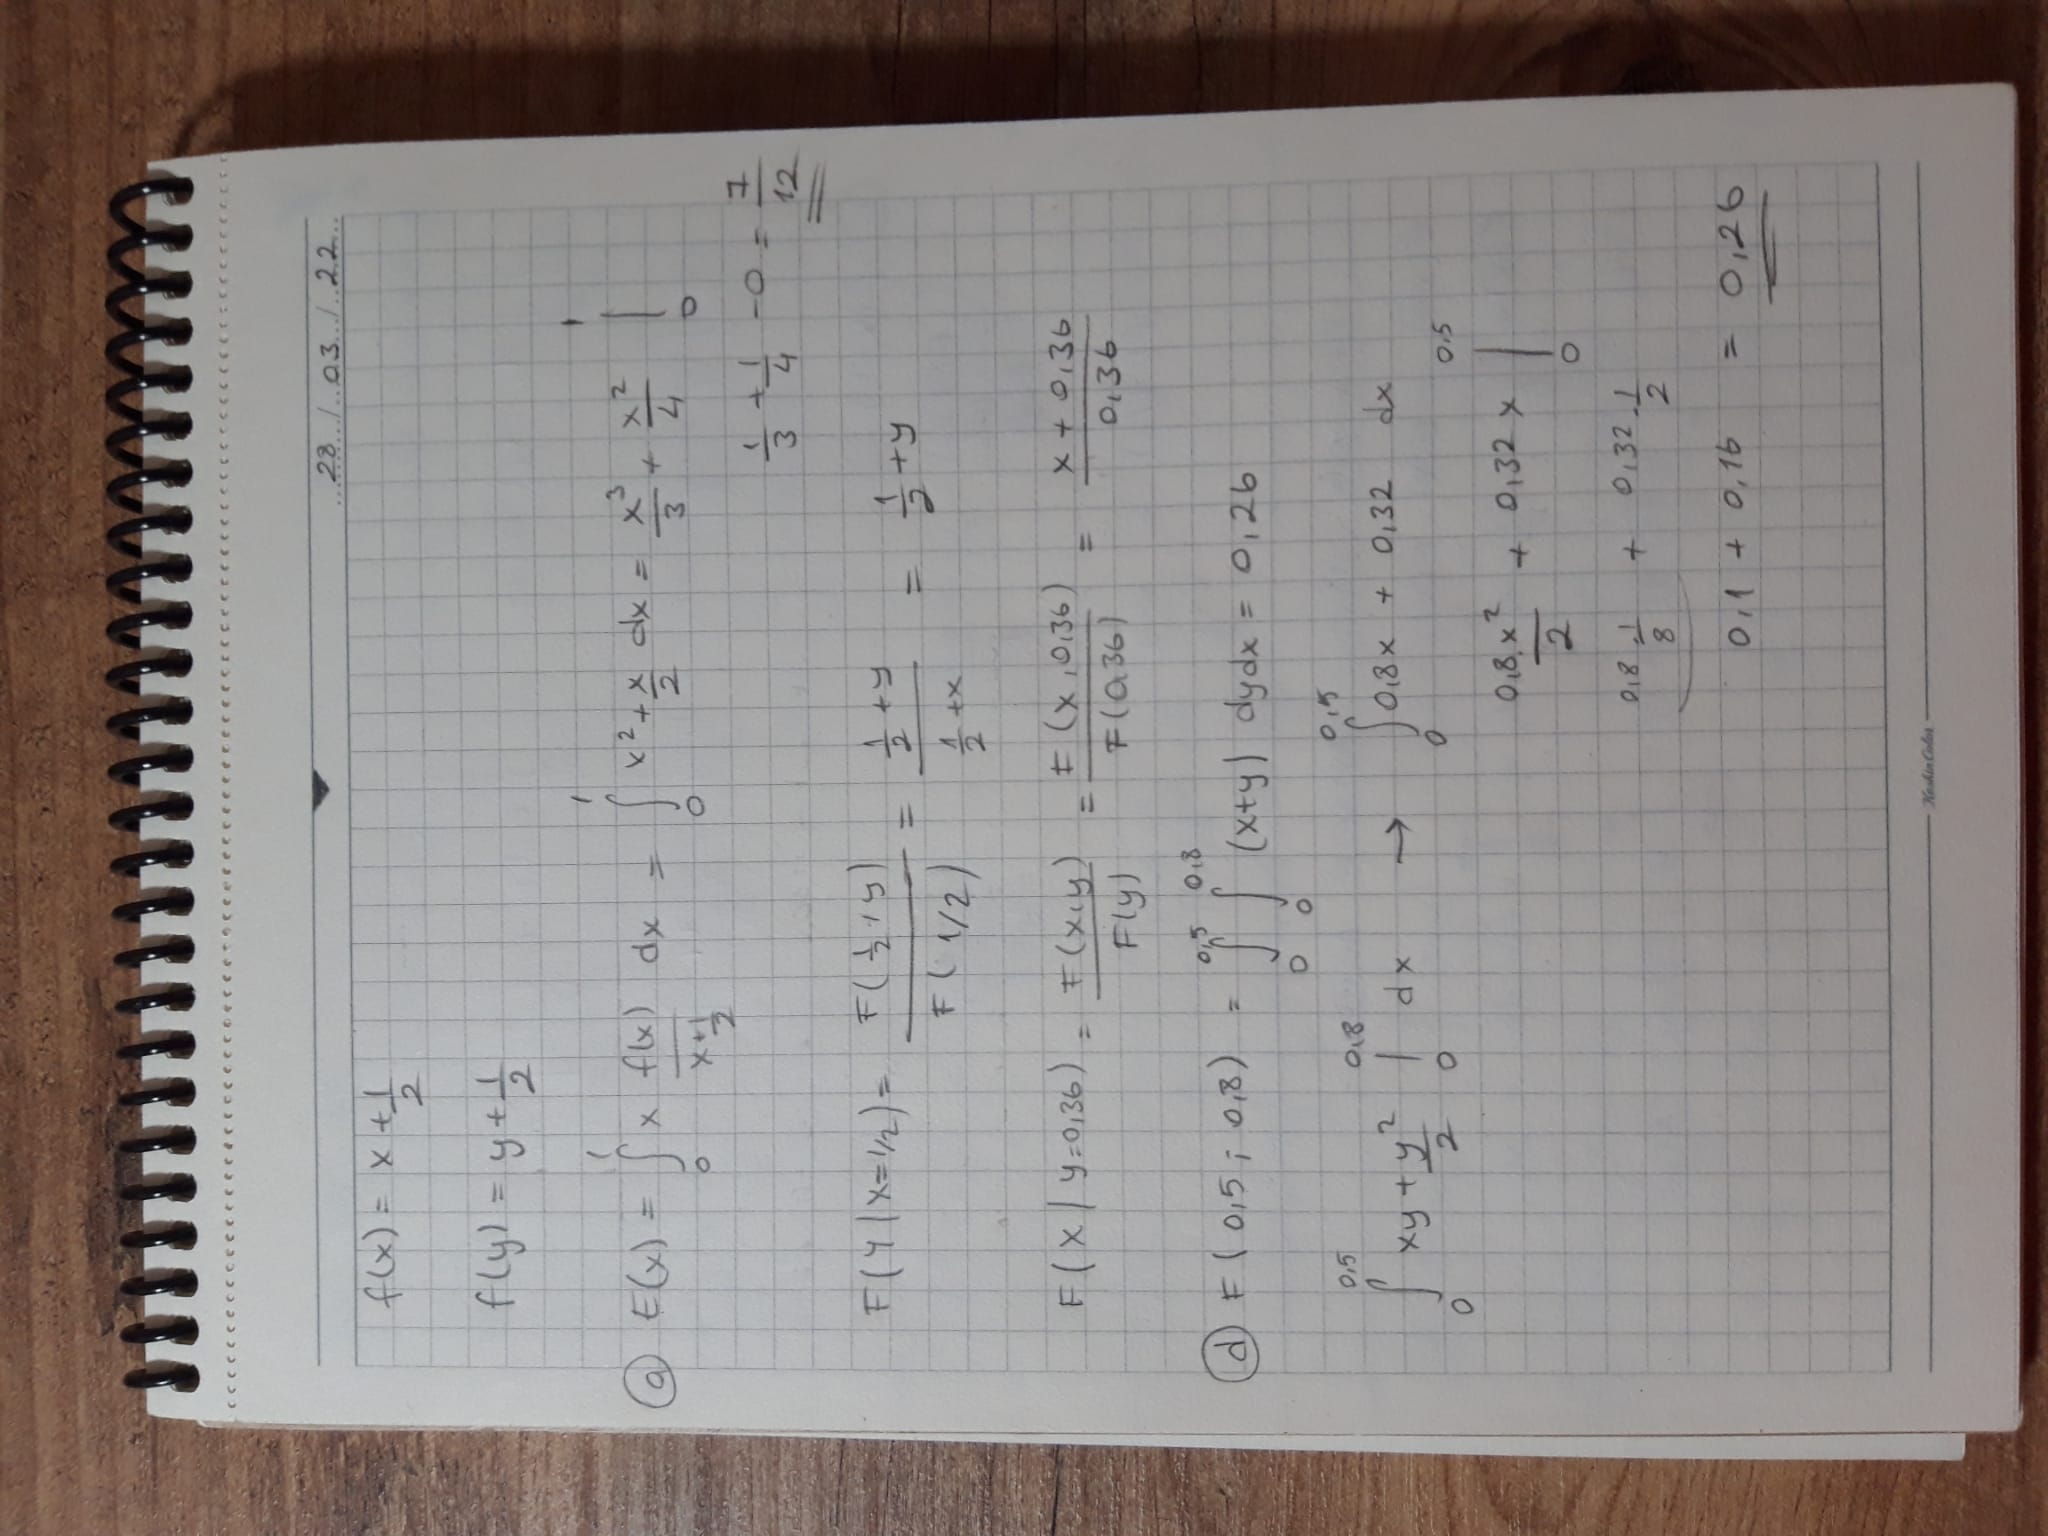 28 / 03 / 22
f(x) = x + 1/2
f(y) = y + 1/2
a) E(x) = ∫₀¹ x f(x) dx = ∫₀¹ x² + x/2 dx = x³/3 + x²/4 |₀¹
x + 1/2
1/3 + 1/4 - 0 = 7/12
F(y | x = 1/2) = F(1/2, y) / F(1/2) = (1/2 + y) / (1/2 + x) = 1/2 + y
F(x | y = 0,36) = F(x,y) / F(y) = F(x, 0,36) / F(0,36) = (x + 0,36) / 0,36
d) F(0,5 ; 0,8) = ∫₀^0,5 ∫₀^0,8 (x+y) dydx = 0,26
∫₀^0,5 xy + y²/2 |₀^0,8 dx → ∫₀^0,5 0,8x + 0,32 dx
0,8.x²/2 + 0,32 x |₀^0,5
0,8 . 1/8 + 0,32 . 1/2
0,1 + 0,16 = 0,26